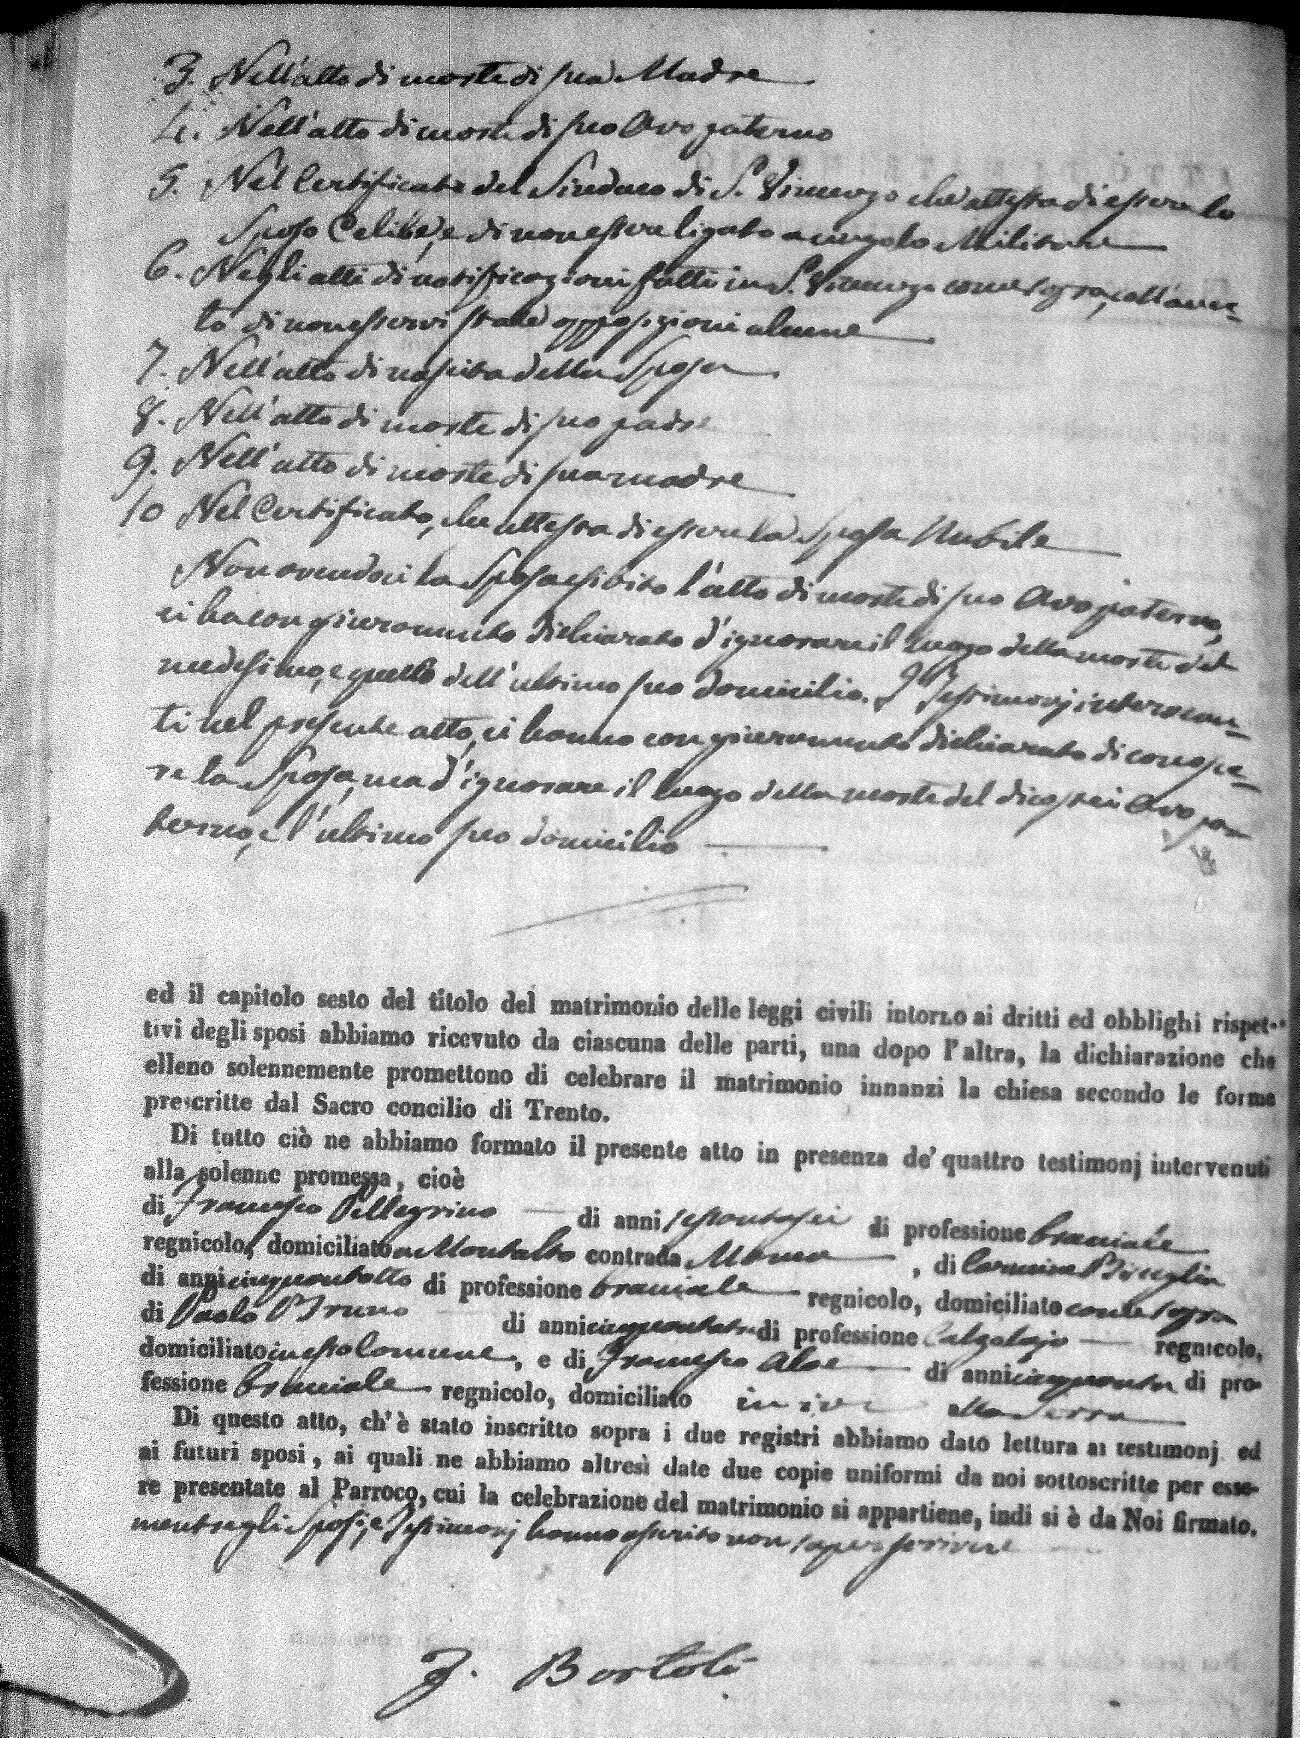 3. Nell'atto di morte di sua Madre
4. Nell'atto di morte di suo Avo paterno
5. Nel Certificato del Sindaco di S. Vincenzo che attesta di essere lo
Sposo Celibe, e di non essere ligato a vincolo Militare
6. Negli atti di notificazioni fatti in S. Vincenzo come sopra, coll'aver-
to di non esservi state opposizioni alcune
7. Nell'atto di nascita della Sposa
8. Nell'atto di morte di suo padre
9. Nell'atto di morte di sua madre
10 Nel Certificato, che attesta di essere la Sposa Nubile
Non avendoci la Sposa esibito l'atto di morte di suo Avo paterno,
ci ha con giuramento dichiarato d'ignorare il luogo della morte del
medesimo, e quello dell'ultimo suo domicilio. I Testimonj intervenu-
ti nel presente atto, ci hanno con giuramento dichiarato di conosce-
re la Sposa, ma d'ignorare il luogo della morte del di costei Avo pa-
terno, e l'ultimo suo domicilio
ed il capitolo sesto del titolo del matrimonio delle leggi civili intorno ai dritti ed obblighi rispet-
tivi degli sposi abbiamo ricevuto da ciascuna delle parti, una dopo l'altra, la dichiarazione che
elleno solennemente promettono di celebrare il matrimonio innanzi la chiesa secondo le forme
prescritte dal Sacro concilio di Trento.
Di tutto ciò ne abbiamo formato il presente atto in presenza de' quattro testimonj intervenuti
alla solenne promessa, cioè
di Francesco Pellegrino di anni sessantasei di professione bracciale
regnicolo, domiciliato a Montalto contrada , di Carmine Biseglia
di anni cinquantotto di professione bracciale regnicolo, domiciliato come sopra
di Paolo Bruno di anni cinquantatre di professione Calzolajo regnicolo,
domiciliato in esso Comune, e di Francesco Aloe di anni cinquanta di pro-
fessione bracciale regnicolo, domiciliato in ivi alla Serra
Di questo atto, ch'è stato inscritto sopra i due registri abbiamo dato lettura ai testimonj ed
ai futuri sposi, ai quali ne abbiamo altresì date due copie uniformi da noi sottoscritte per esse-
re presentate al Parroco, cui la celebrazione del matrimonio si appartiene, indi si è da Noi firmato.
mentre gli Sposi, e Testimonj hanno asserito non saper scrivere
F. Bortoli